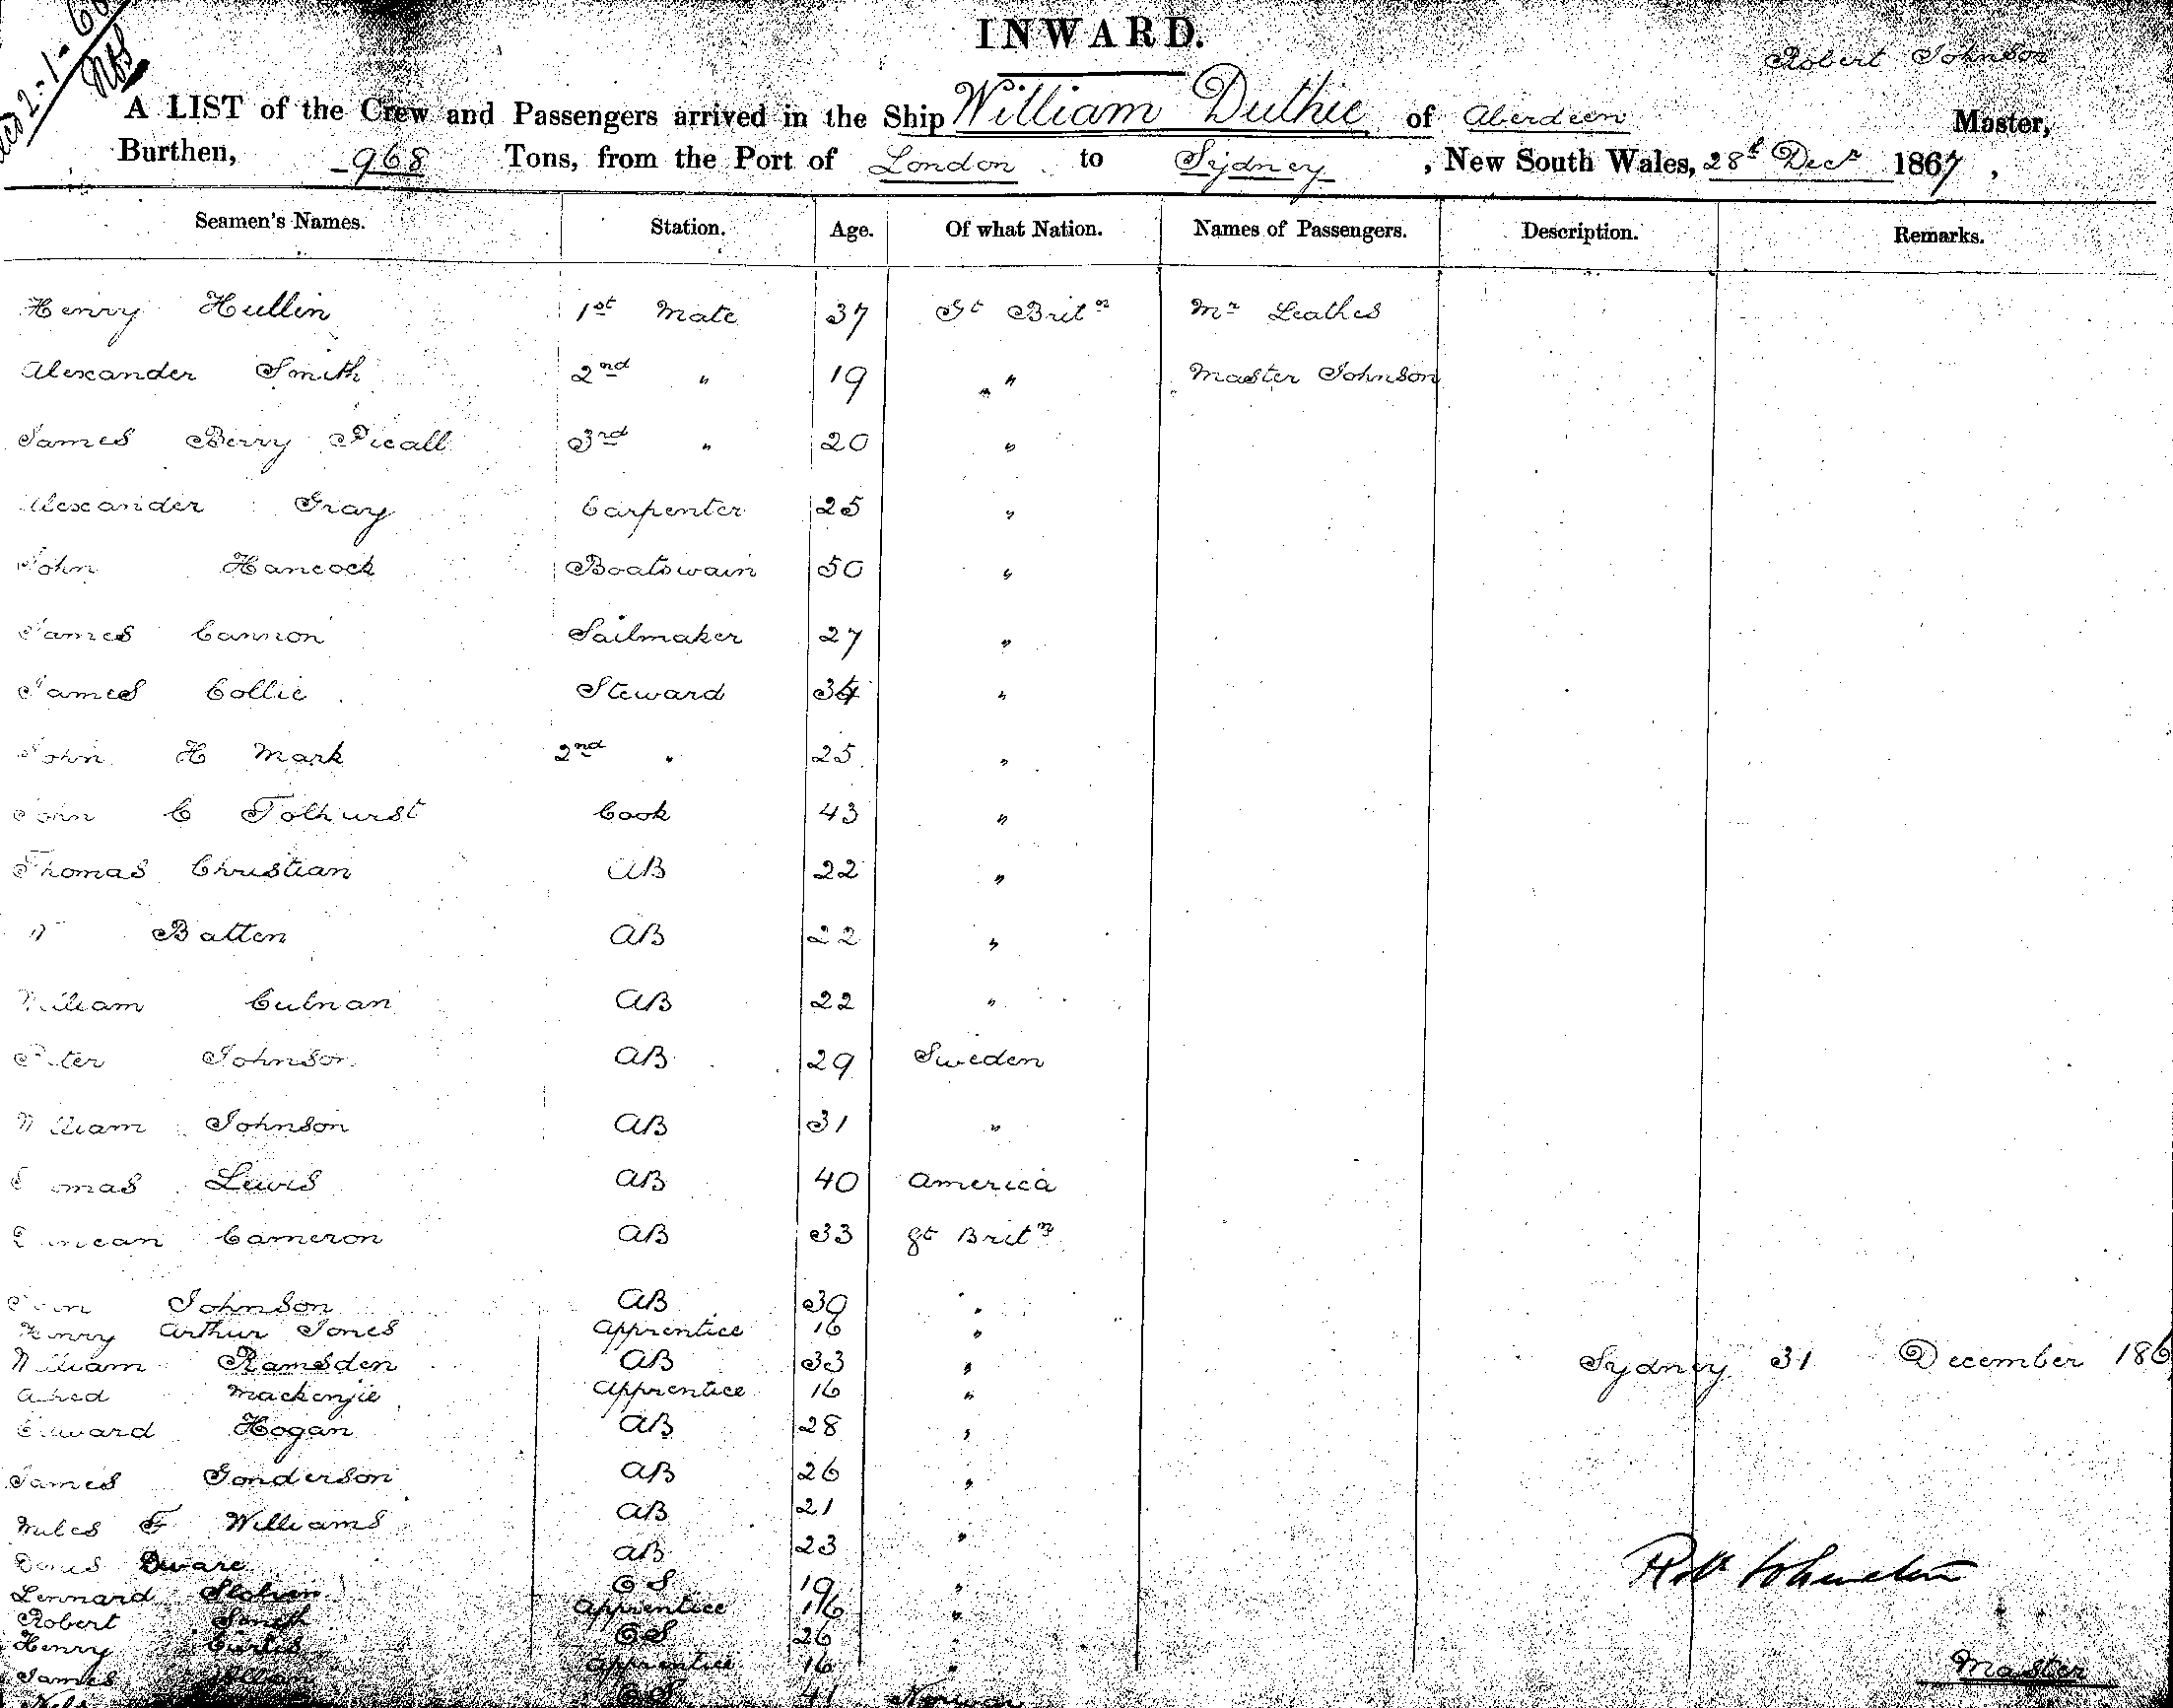 INWARD.
Robert Johnson
A LIST of the Crew and Passengers arrived in the Ship William Duthie of Aberdeen Master,
Burthen, 968 Tons, from the Port of London to Sydney, New South Wales, 28t Decr 1867,
Seamen's Names. Station. Age. Of what Nation. Names of Passengers. Description. Remarks.
Henry Hullin 1st Mate 37 Gt Britn Mr Leathes
Alexander Smith 2nd " 19 " Master Johnson
James Berry Picall 3rd " 20 "
Alexander Gray Carpenter 25 "
John Hancock Boatswain 50 "
James Cannon Sailmaker 27 "
James Collie Steward 34 "
John H Mark 2nd " 25 "
John C Tolhurst Cook 43 "
Thomas Christian AB 22 "
Batten AB 22 "
William Culnan AB 22 "
Peter Johnson AB 29 Sweden
William Johnson AB 31 "
Thomas Lewis AB 40 America
Duncan Cameron AB 33 gt Britn
Johnson AB 39 "
Henry Arthur Jones Apprentice 16 "
William Ramsden AB 33 " Sydney 31 December 186
Mackenzie Apprentice 16 "
Edward Hogan AB 28 "
James Gonderson AB 26 "
Miles F Williams AB 21 "
Dware AB 23
Lennard OS 19 "
Robert Smith Apprentice 16 "
Henry Curtis OS 26 "
James Apprentice 16 "
OS 41 Norway
Master